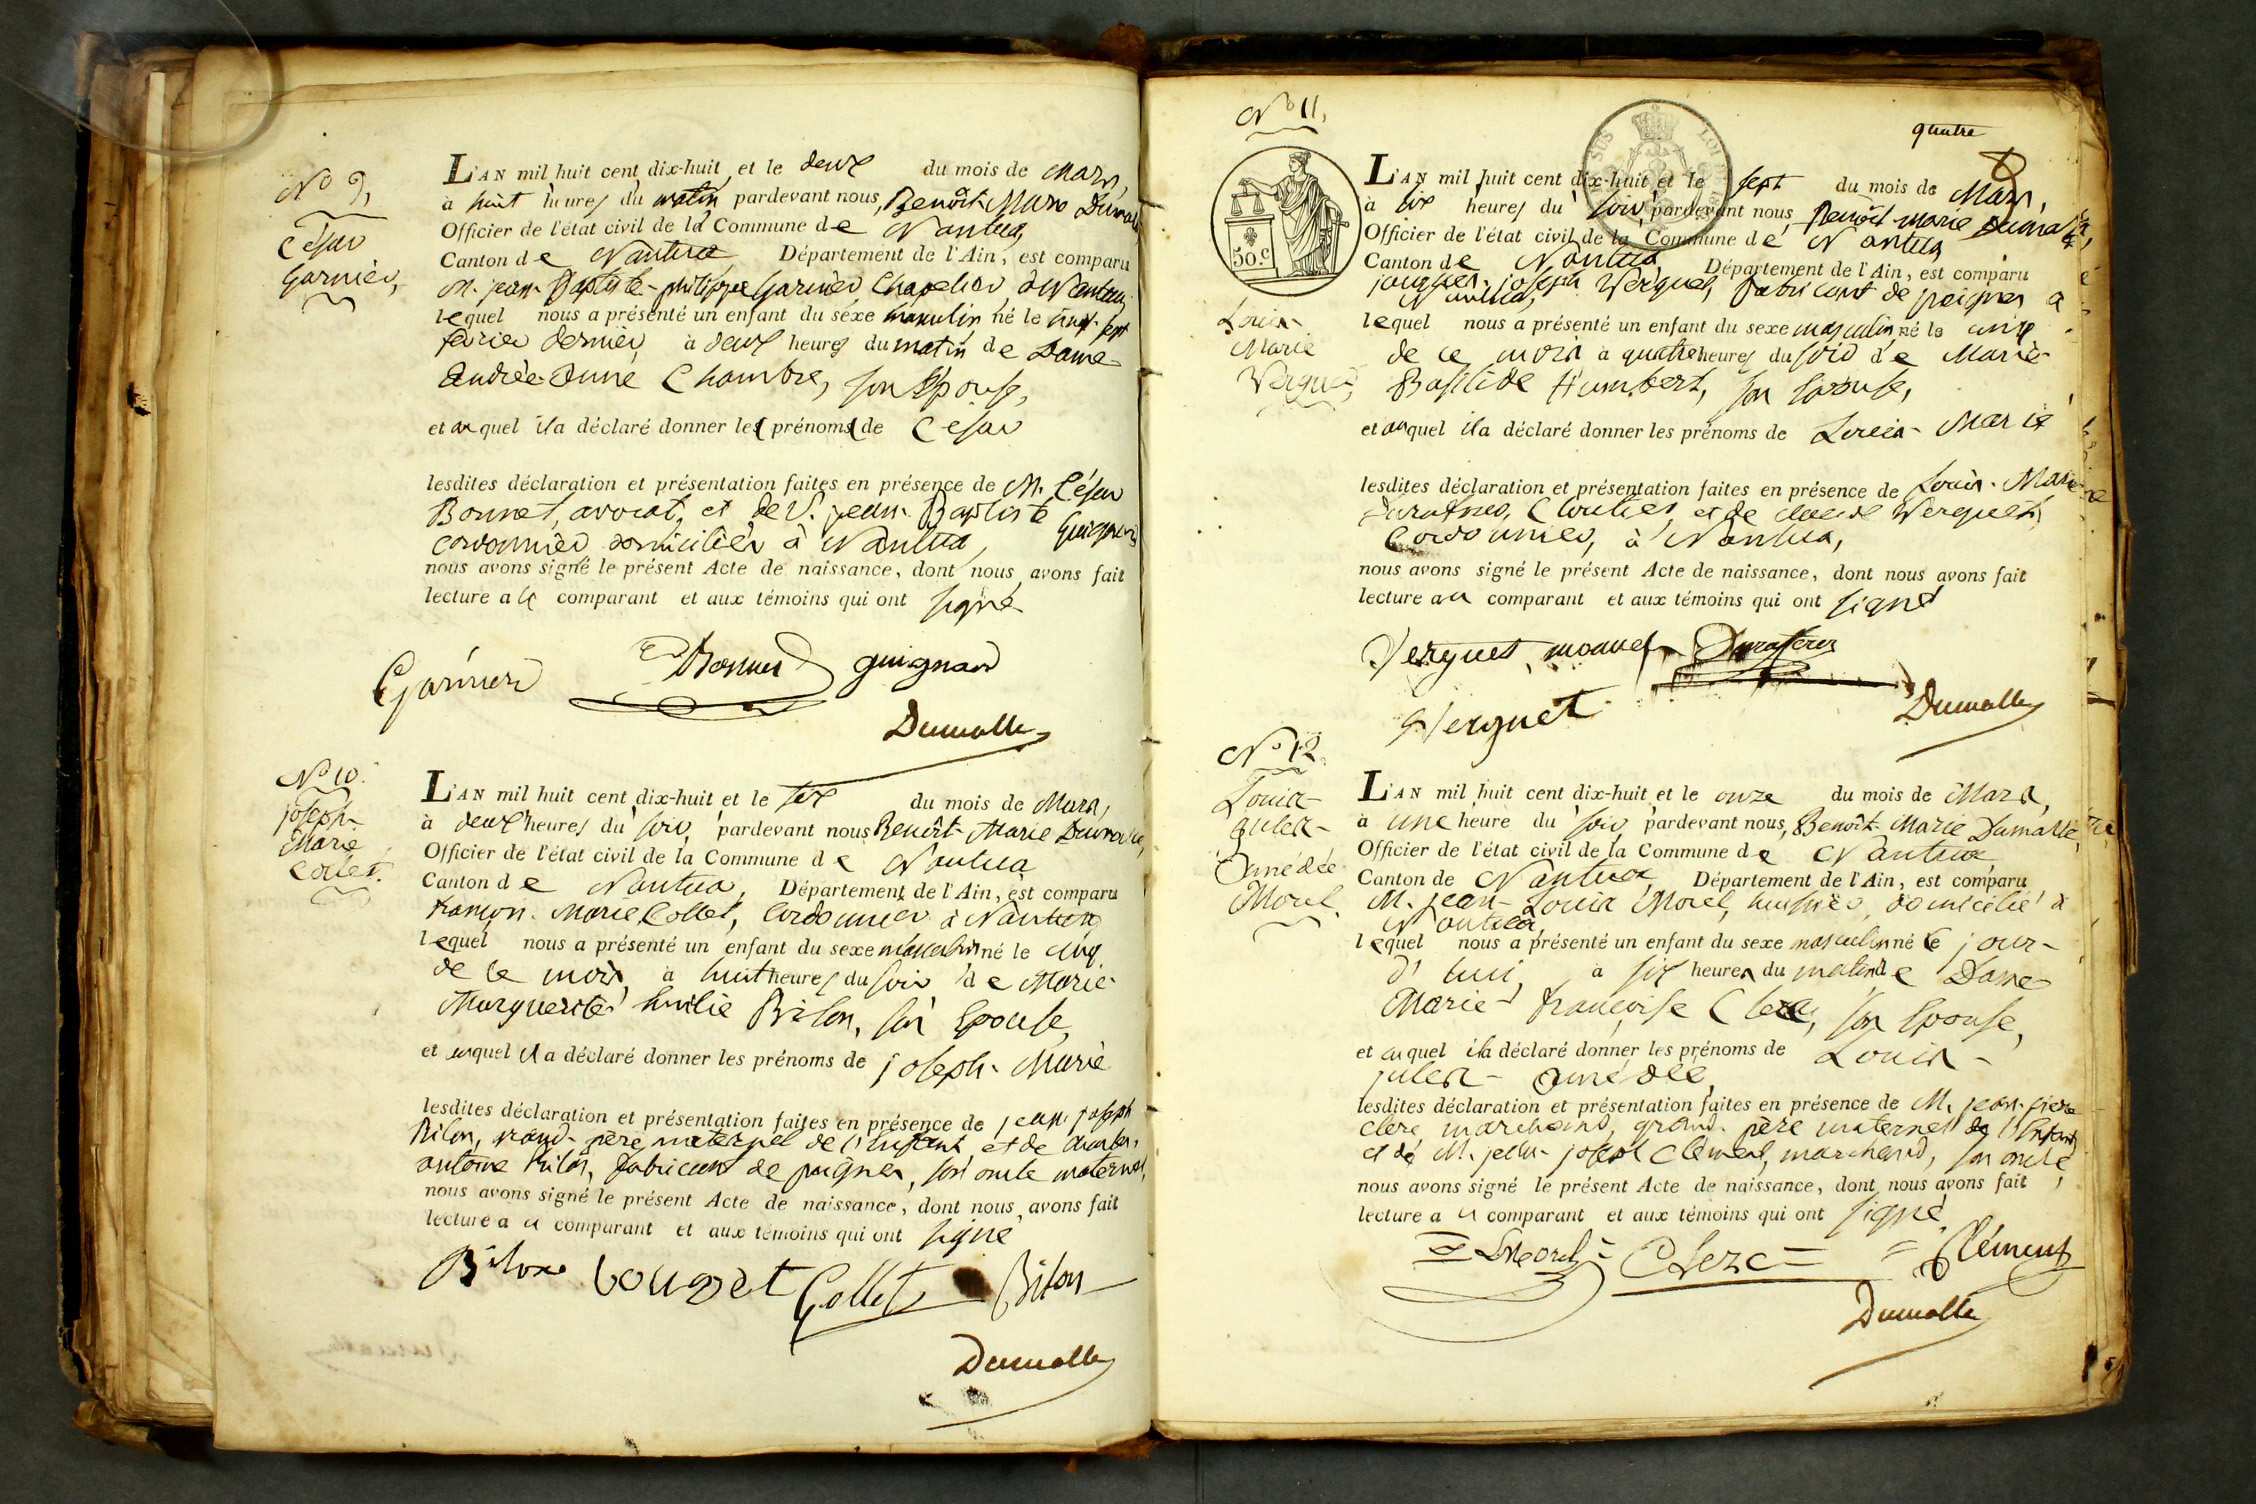 No 9,
César
Garnier,
L'AN mil huit cent dix-huit et le deux du mois de Mars,
à huit heures du matin pardevant nous, Benoît-Marie
Officier de l'état civil de la Commune de Nantua
Canton de Nantua Département de l'Ain, est comparu
M. jean-Baptiste-philippe Garnier, Chapelier à Nantua
lequel nous a présenté un enfant du sexe masculin né le vingt-sept
février dernier à deux heures du matin de Dame
Andrée Chambre, son Epouse,
et auquel il a déclaré donner les prénoms de César
lesdites déclaration et présentation faites en présence de M. César
Bonnet, avocat, et de S. jean-Baptiste Guignard
cordonnier domiciliés à Nantua,
nous avons signé le présent Acte de naissance, dont nous avons fait
lecture au comparant et aux témoins qui ont signé
Garnier Bonnet guignard
Dumolle
No 10.
joseph-
Marie
Collet.
L'AN mil huit cent dix-huit et le six du mois de Mars,
à deux heures du soir, pardevant nous Benoît-Marie
Officier de l'état civil de la Commune de Nantua
Canton de Nantua, Département de l'Ain, est comparu
françois-Marie Collet, Cordonnier à Nantua
lequel nous a présenté un enfant du sexe masculin né le cinq
de ce mois, à huit heures du soir de Marie-
Marguerite Emilie Bilon, son Epouse,
et auquel il a déclaré donner les prénoms de joseph-Marie
lesdites déclaration et présentation faites en présence de jean-joseph
Bilon, grand-père maternel de l'Enfant et de
antoine Bilon, fabricant de peignes, son oncle maternel,
nous avons signé le présent Acte de naissance, dont nous avons fait
lecture au comparant et aux témoins qui ont signé
Bilon Collet Bilon
Dumolle
No 11,
quatre
50.c
Louis-
Marie
Verguet,
L'AN mil huit cent dix-huit et le sept du mois de Mars,
à six heures du soir, pardevant nous Benoît-marie
Officier de l'état civil de la Commune de Nantua
Canton de Nantua Département de l'Ain, est comparu
jacques-joseph Verguet, fabricant de peignes à
Nantua,
lequel nous a présenté un enfant du sexe masculin né le cinq
de ce mois à quatre heures du soir de Marie-
Basilide Humbert, son Epouse,
et auquel il a déclaré donner les prénoms de Louis-Marie
lesdites déclaration et présentation faites en présence de Louis-Marie
Cloutier, et de Verguet,
Cordonnier, à Nantua,
nous avons signé le présent Acte de naissance, dont nous avons fait
lecture au comparant et aux témoins qui ont signé
Verguet
Verguet Dumolle
No 12.
Louis-
jules-
Amédée
Morel.
L'AN mil huit cent dix-huit et le onze du mois de Mars,
à une heure du soir pardevant nous, Benoît-Marie
Officier de l'état civil de la Commune de Nantua
Canton de Nantua Département de l'Ain, est comparu
M. jean-Louis Morel, huissier, domicilié à
Nantua,
lequel nous a présenté un enfant du sexe masculin né le jour-
d'hui, à six heures du matin de Dame
Marie-françoise Clerc, son Epouse,
et auquel il a déclaré donner les prénoms de Louis-
jules-Amédée,
lesdites déclaration et présentation faites en présence de M. jean-pierre
clerc marchand, grand-père maternel de l'Enfant
et de M. jean-joseph Clément, marchand, son oncle
nous avons signé le présent Acte de naissance, dont nous avons fait
lecture au comparant et aux témoins qui ont signé
Morel Clerc Clément
Dumolle